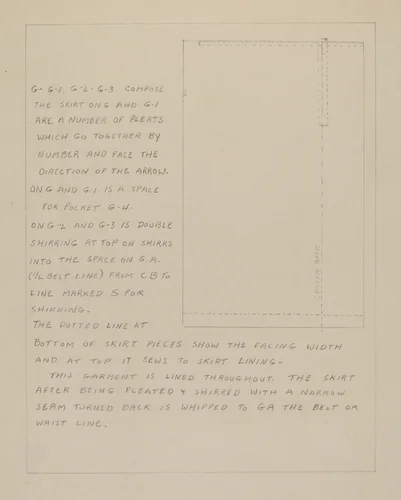 G- G-1, G-2- G-3 COMPOSE
THE SKIRT ON G AND G-1
ARE A NUMBER OF PLEATS
WHICH GO TOGETHER BY
NUMBER AND FACE THE
DIRECTION OF THE ARROW.
ON G AND G-1 IS A SPACE
FOR POCKET G-4.
ON G-2 AND G-3 IS DOUBLE
SHIRRING AT TOP ON SHIRKS
INTO THE SPACE ON G.A.
(1/2 BELT LINE) FROM C B TO
LINE MARKED S FOR
SHIRRING.
THE DOTTED LINE AT
BOTTOM OF SKIRT PIECES SHOW THE FACING WIDTH
AND AT TOP IT SEWS TO SKIRT LINING-
THIS GARMENT IS LINED THROUGHOUT. THE SKIRT
AFTER BEING PLEATED & SHIRRED WITH A NARROW
SEAM TURNED BACK IS WHIPPED TO GA THE BELT OR
WAIST LINE.
CENTER BACK